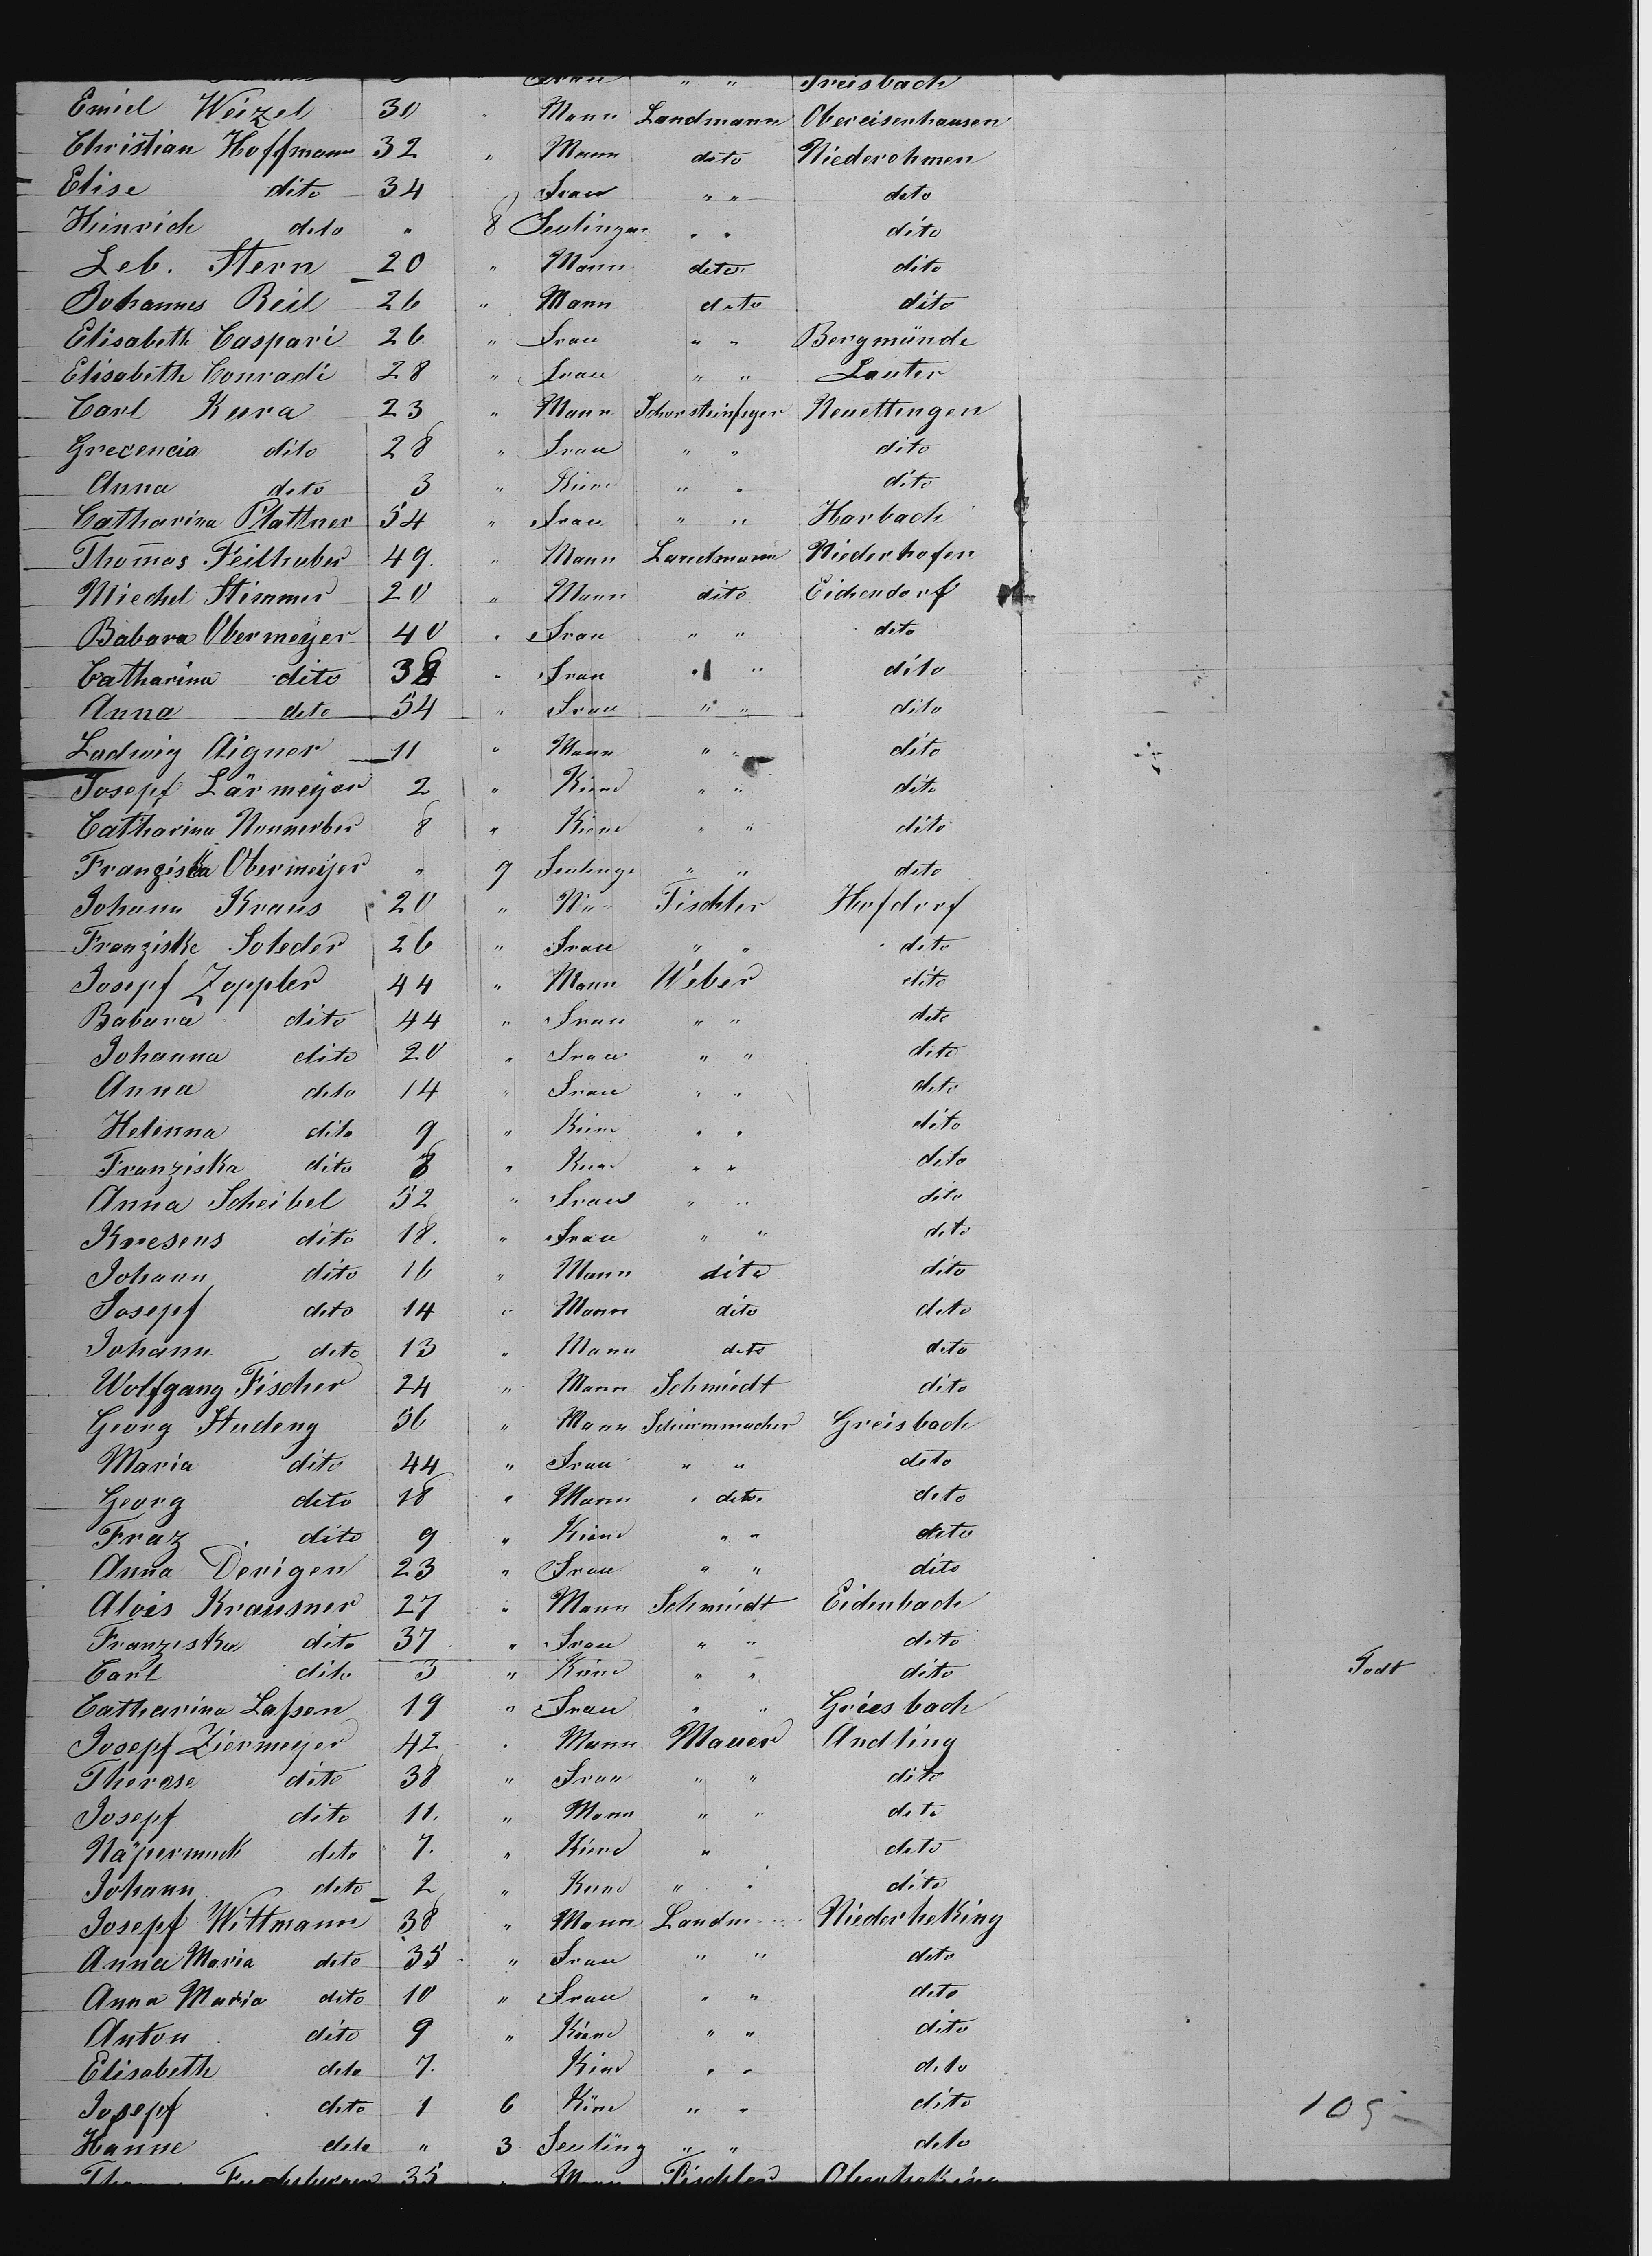 Frau " " Preisbach
Emiel Weizel 30 " Mann Landmann Obereisenhausen
Christian Hoffmann 32 " Mann dito Niederohmen
Elise dito 34 Frau " " dito
Heinrich dito " 8 " " dito
Leb. Stern 20 " Mann dito dito
Johannes Reil 26 " Mann dito dito
Elisabeth Caspari 26 " Frau " " Bergmünde
Elisabeth Conradi 28 " Frau " " Lauter
Carl Kura 23 " Mann Schorsteinfeger Neuettingen
Grecencia dito 28 " Frau " " dito
Anna dito 3 " Kind " " dito
Catharina Plattner 54 " Frau " " Harbach
Thomas Feilhuber 49. " Mann Landmann Niederhofen
Miechel Stimmer 20 " Mann dito Eichendorf
Babara Obermeÿer 40 " Frau " " dito
Catharina dito 38 " Frau " " dito
Anna dito 54 " Frau " " dito
Ludwig Aigner 11 " Mann " " dito
Josepf Lärmeÿer 2 " Kind " " dito
Catharina 8 " Kind " " dito
Franziska Obermeijer " 9 " " dito
Johann Kraus 20 " Tischler Hofdorf
Franziske Soleder 26 " Frau " " dito
Josepf Zoppler 44 " Mann Weber dito
Babara dito 44 " Frau " " dito
Johanna dito 20 " Frau " " dito
Anna dito 14 " Frau " " dito
Helenna dito 9 " Kind " " dito
Franziska dito 8 " Kind " " dito
Anna Scheibel 52 " Frau " " dito
Kresens dito 18. " Frau " " dito
Johann dito 16 " Mann dito dito
Josepf dito 14 " Mann dito dito
Johann dito 13 " Mann dito dito
Wolfgang Fischer 24 " Mann Schmiedt dito
Georg Studeny 56 " Mann Schirmmacher Greisbach
Maria dito 44 " Frau " " dito
Georg dito 18 " Mann dito dito
Fraz dito 9 " Kind " " dito
Anna Derigen 23 " Frau " " dito
Alois Krausner 27 " Mann Schmiedt Eidenbach
Franziska dito 37 " Frau " " dito
Carl dito 3 " Kind " " dito Todt
Catharina Laßen 19 " Frau " " Griesbach
Josepf Ziermeijer 42 " Mann Mauer Andling
Therese dito 38 " Frau " " dito
Josepf dito 11. " Mann " " dito
Näpermuck dito 7. " Kind " dito
Johann dito 2 " Kind " " dito
Josepf Wittmann 38 " Mann Niederheking
Anna Maria dito 35 " Frau " " dito
Anna Maria dito 10 " Frau " " dito
Anton dito 9 " Kind " " dito
Elisabeth dito 7. Kind " " dito
Josepf dito 1 6 Kind " " dito 105
Hanne dito " 3 Seuling " " dito
35 " Mann Tischler Oberheking